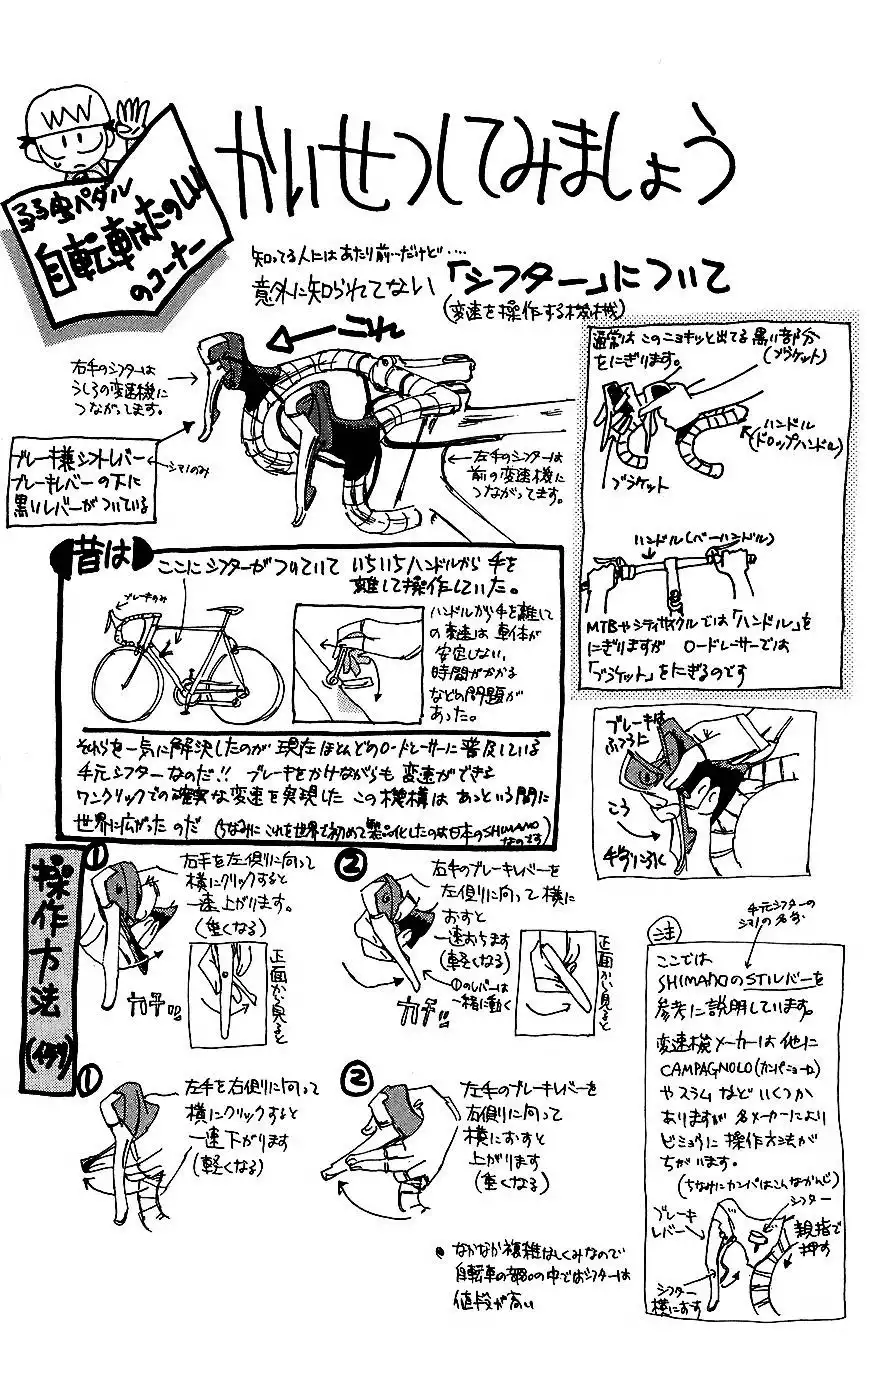 かいせつしてみましょう
弱虫ペダル
自転車はたのしい
のコーナー
知ってる人にはあたり前…だけど‥‥
意外に知られてない「シフター」について
(変速を操作する機械)
これ
右手のシフターは
うしろの変速機に
つながってます。
ブレーキ兼シフトレバー
ブレーキレバーの下に
黒いレバーがついている
シマノのみ
左手のシフターは
前の変速機に
つながってます。
通常はこのニョキッと出てる黒い部分
をにぎります。(ブラケット)
ハンドル
(ドロップハンドル)
ブラケット
ハンドル(バーハンドル)
MTBやシティサイクルでは「ハンドル」を
にぎりますが ロードレーサーでは
「ブラケット」をにぎるのです
昔は
ここにシフターがついていて いちいちハンドルから手を
離して操作していた。
ブレーキのみ
ハンドルから手を離して
の変速は車体が
安定しない、
時間がかかる
などの問題が
あった。
それらを一気に解決したのが 現在ほとんどのロードレーサーに普及している
手元シフターなのだ!! ブレーキをかけながらも変速ができる
ワンクリックでの確実な変速を実現した この機構は あっという間に
世界に広がったのだ (ちなみにこれを世界で初めて製品化したのは日本のSHIMANO
なのです)
ブレーキは
ふつうに
こう
手前にひく
操作方法
①
右手を左側に向って
横にクリックすると
一速上がります。
(重くなる)
カチッ!!
正面から見ると
②
右手のブレーキレバーを
左側に向って横に
おすと
一速おちます
(軽くなる)
①のレバーは
一緒に動く
カチッ!!
正面から見ると
①
左手を右側に向って
横にクリックすると
一速下がります
(軽くなる)
②
左手のブレーキレバーを
右側に向って
横におすと
上がります
(重くなる)
●なかなか複雑なしくみなので
自転車の部品の中ではシフターは
値段が高い
注
手元シフターの
シマノの名前
ここでは
SHIMANOのSTIレバーを
参考に説明しています。
変速機メーカーは他に
CAMPAGNOLO(カンパニョーロ)
やスラムなどいくつか
ありますが各メーカーにより
ビミョウに操作方法が
ちがいます。
(ちなみにカンパはこんなかんじ)
ブレーキ
レバー
シフター
親指で
押す
シフター
横におす